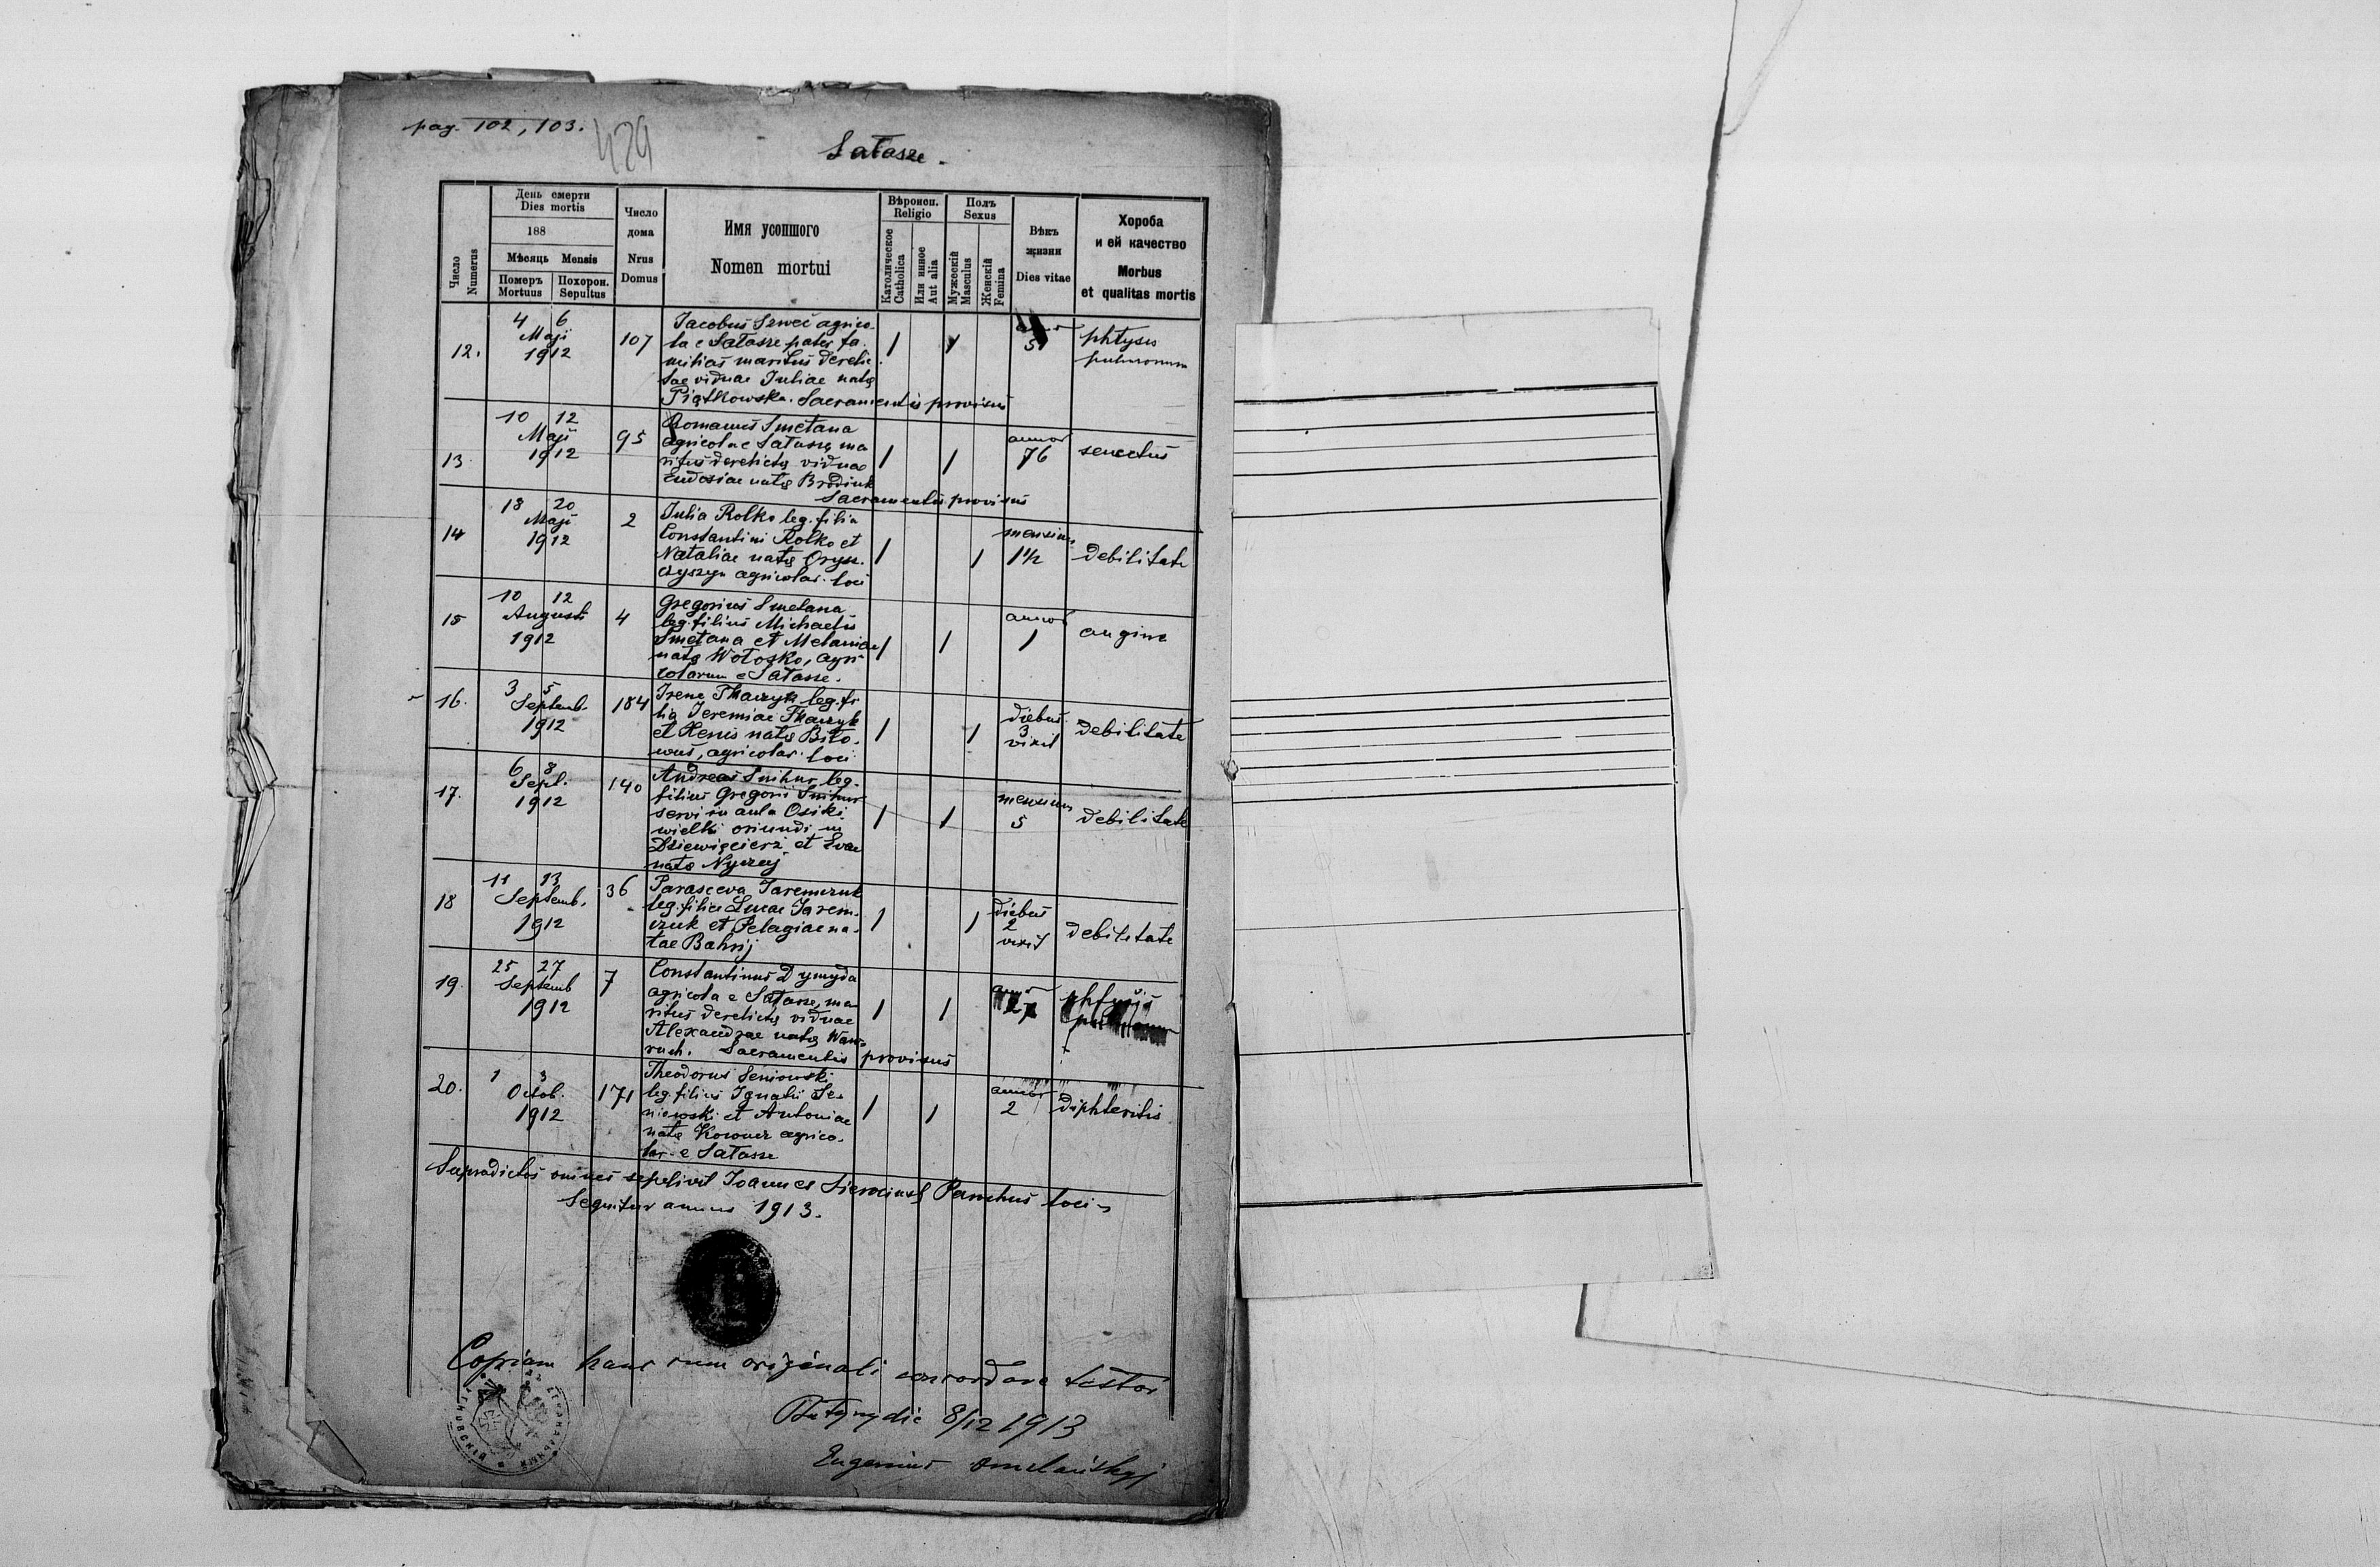 pag. 102, 103.
429
Sałasze.
Число
Numerus
День смерти
Dies mortis
188
Мѣсяць Mensis
Померъ
Mortuus
Похорон.
Sepultus
Число
дома
Nrus
Domus
Имя усопшого
Nomen mortui
Вѣроисп.
Religio
Католическое
Catholica
Или инное
Aut alia
Полъ
Sexus
Мужескій
Masculus
Женскій
Femina
Вѣкъ
жизни
Dies vitae
Хороба
и ей качество
Morbus
et qualitas mortis
12.
4 6
Maji
1912
107
Jacobus Szweć agrico-
la e Sałasze pater fa-
milias maritus derelic-
tae viduae Juliae natę
Piątkowska. Sacramentis provisus
1 1
phtysis
pulmonum
13.
10 12
Maji
1912
95
Romanus Smetana
agricola e Sałasze, ma
ritus derelictę viduae
Eudosiae natę Brodiuk
Sacramentis provisus
1 1
annor
76
senectus
14
18 20
Maji
1912
2
Julia Rolko leg. filia
Constantini Rolko et
Nataliae natę Orysz-
czyszyn agricolar. loci
1 1
mensium
1 1/2
debilitate
15
10 12
Augusti
1912
4
Gregorius Smetana
leg. filius Michaelis
Smetana et Melaniae
natę Wołoszko, agri-
colarum e Sałasze.
1 1
annor
1
angina
16.
3 5
Septemb.
1912
184
Irena Tkaczyk leg. fi
lia Jeremiae Tkaczyk
et Xenis natę Biło-
wus, agricolar. loci
1 1
diebus
3
vixit
debilitate
17.
6 8
Sept.
1912
140
Andreas Snihur leg.
filius Gregorii Snihur
servi in aula Osiki
wielki oriundi in
Dziewięcierz et Evae
natę Nyczaj
1 1
mensium
5
debilitate
18
11 13
Septemb.
1912
36
Parasceva Jaremczuk
leg. filia Lucae Jarem-
czuk et Pelagiae na-
tae Bahrij
1 1
diebus
2
vixit
debilitate
19.
25 27
Septemb
1912
7
Constantinus Dymyda
agricola e Sałasze, ma
ritus derelictę viduae
Alexandrae natę Waw-
ruch. Sacramentis provisus
1 1
phtysis
20.
1 3
Octob.
1912
171
Theodorus Seniowski
leg. filius Ignatii Se-
niowski et Antoniae
natę agrico-
lar. e Sałasze
1 1
annor
2
diphteritis
Supradictos omnes sepelivit Joannes Parochus loci
Sequitur annus 1913.
Copiam hanc cum originali concordare testor
die 8/12 1913
Eugenius